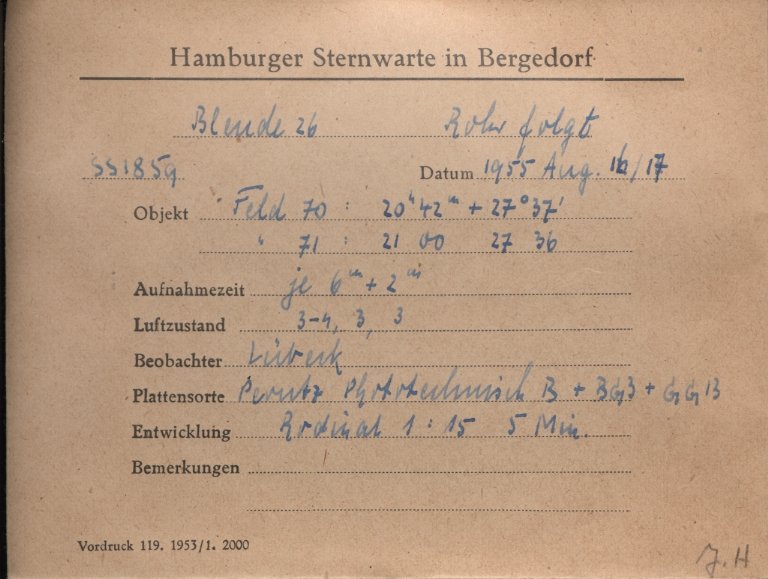 Hamburger Sternwarte in Bergedorf
Blende 26 Rohr folgt
SS 1859 Datum 1955 Aug. 16/17
Objekt Feld 70 : 20h 42m + 27° 37'
" 71 : 21 00 27 36
Aufnahmezeit je 6m + 2m
Luftzustand 3-4, 3, 3
Beobachter Lübeck
Plattensorte Perutz Phototechnisch B + BG3 + GG13
Entwicklung Rodinal 1 : 15 5 Min.
Bemerkungen
Vordruck 119. 1953/1. 2000
J. H